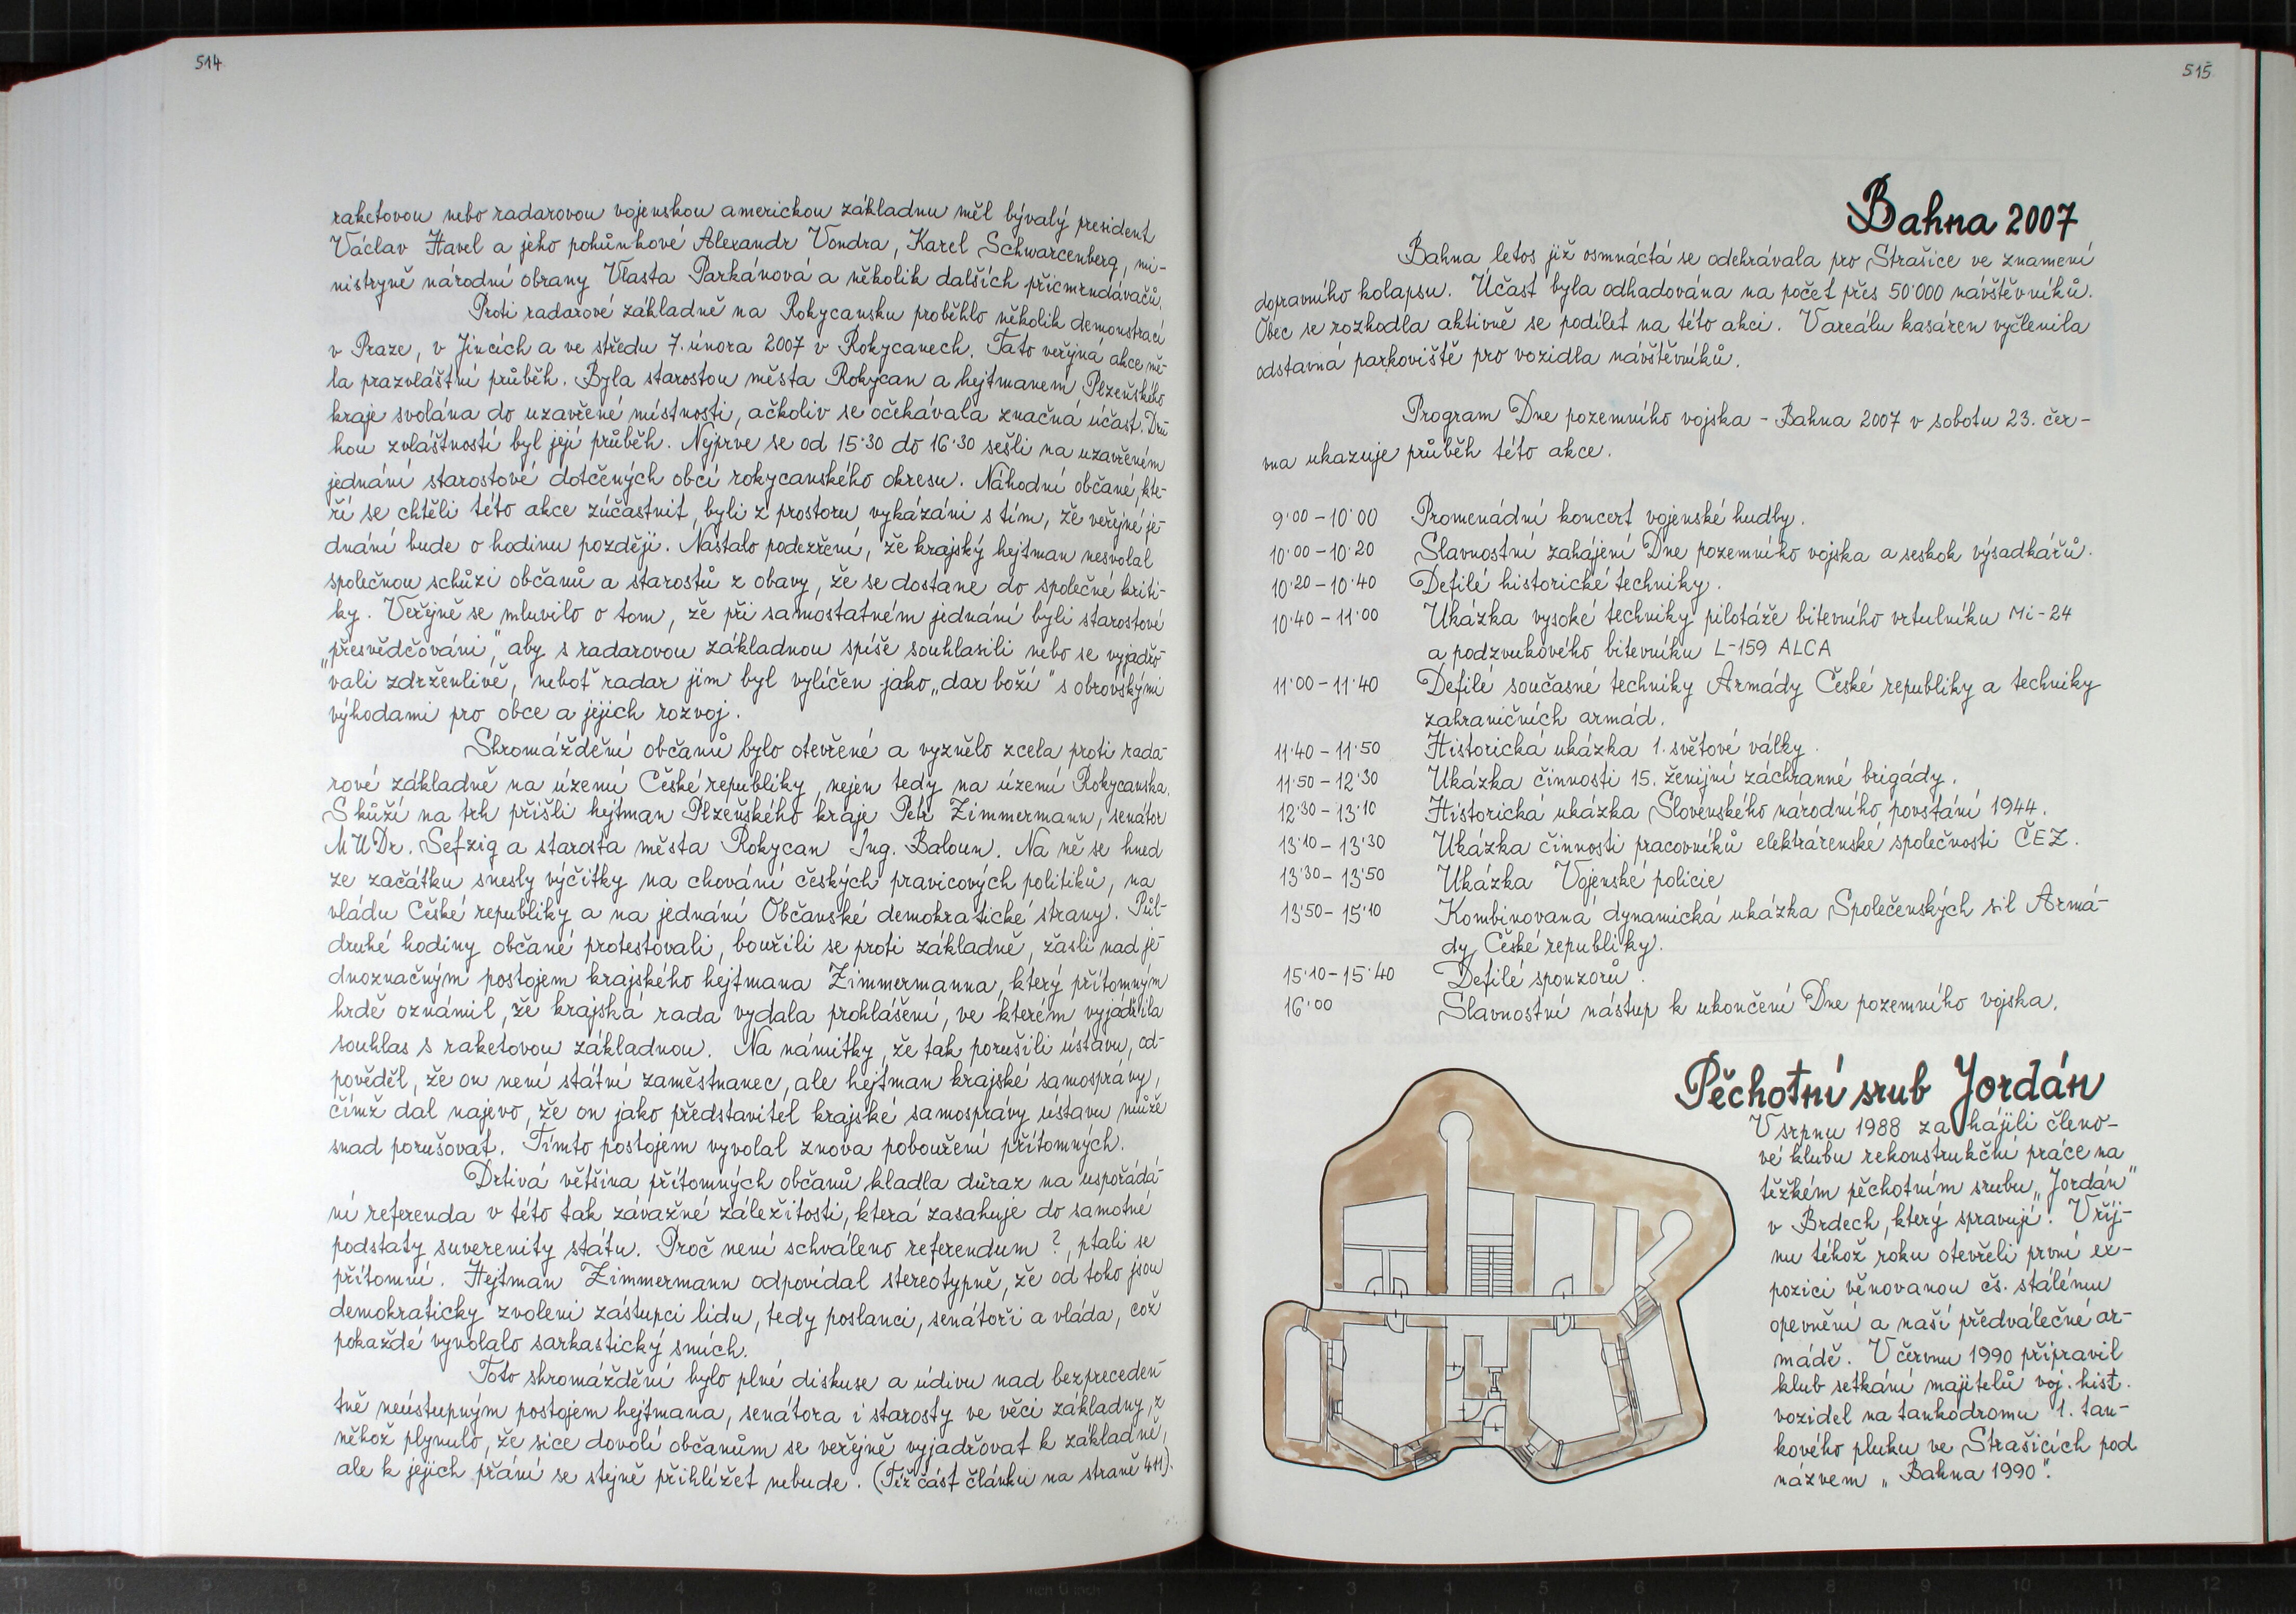 514
raketovou nebo radarovou vojenskou americkou základnu měl bývalý president
Václav Havel a jeho pohůnkové Alexandr Vondra, Karel Schwarcenberg, mi-
nistryně národní obrany Vlasta Parkánová a několik dalších přicmrndávačů.
Proti radarové základně na Rokycansku proběhlo několik demonstrací
v Praze, v Jincích a ve středu 7. února 2007 v Rokycanech. Tato veřejná akce mě-
la prazvláštní průběh. Byla starostou města Rokycan a hejtmanem Plzeňského
kraje svolána do uzavřené místnosti, ačkoliv se očekávala značná účast. Dru-
hou zvláštností byl její průběh. Nejprve se od 15˙30 do 16˙30 sešli na uzavřeném
jednání starostové dotčených obcí rokycanského okresu. Náhodní občané, kte-
ří se chtěli této akce zúčastnit, byli z prostoru vykázáni s tím, že veřejné je-
dnání bude o hodinu později. Nastalo podezření, že krajský hejtman nesvolal
společnou schůzi občanů a starostů z obavy, že se dostane do společné kriti-
ky. Veřejně se mluvilo o tom, že při samostatném jednání byli starostové
„přesvědčováni", aby s radarovou základnou spíše souhlasili nebo se vyjadřo-
vali zdrženlivě, neboť radar jim byl vylíčen jako „dar boží" s obrovskými
výhodami pro obce a jejich rozvoj.
Shromáždění občanů bylo otevřené a vyznělo zcela proti rada-
rové základně na území České republiky, nejen tedy na území Rokycanska.
S kůží na trh přišli hejtman Plzeňského kraje Petr Zimmermann, senátor
MUDr. Sefzig a starosta města Rokycan Ing. Baloun. Na ně se hned
ze začátku snesly výčitky na chování českých pravicových politiků, na
vládu České republiky a na jednání Občanské demokratické strany. Půl-
druhé hodiny občané protestovali, bouřili se proti základně, žasli nad je-
dnoznačným postojem krajského hejtmana Zimmermanna, který přítomným
hrdě oznámil, že krajská rada vydala prohlášení, ve kterém vyjádřila
souhlas s raketovou základnou. Na námitky, že tak porušili ústavu, od-
pověděl, že on není státní zaměstnanec, ale hejtman krajské samosprávy,
čímž dal najevo, že on jako představitel krajské samosprávy ústavu může
snad porušovat. Tímto postojem vyvolal znova pobouření přítomných.
Drtivá většina přítomných občanů kladla důraz na uspořádá-
ní referenda v této tak závažné záležitosti, která zasahuje do samotné
podstaty suverenity státu. Proč není schváleno referendum?, ptali se
přítomní. Hejtman Zimmermann odpovídal stereotypně, že od toho jsou
demokraticky zvoleni zástupci lidu, tedy poslanci, senátoři a vláda, což
pokaždé vyvolalo sarkastický smích.
Toto shromáždění bylo plné diskuse a údivu nad bezpreceden-
tně neústupným postojem hejtmana, senátora i starosty ve věci základny, z
něhož plynulo, že sice dovolí občanům se veřejně vyjadřovat k základně,
ale k jejich přání se stejně přihlížet nebude. (Též část článku na straně 411).
515
Bahna 2007
Bahna letos již osmnáctá se odehrávala pro Strašice ve znamení
dopravního kolapsu. Účast byla odhadována na počet přes 50˙000 návštěvníků.
Obec se rozhodla aktivně se podílet na této akci. V areálu kasáren vyčlenila
odstavná parkoviště pro vozidla návštěvníků.
Program Dne pozemního vojska - Bahna 2007 v sobotu 23. čer-
vna ukazuje průběh této akce.
9˙00 - 10˙00 Promenádní koncert vojenské hudby.
10˙00 - 10˙20 Slavnostní zahájení Dne pozemního vojska a seskok výsadkářů.
10˙20 - 10˙40 Defilé historické techniky.
10˙40 - 11˙00 Ukázka vysoké techniky pilotáže bitevního vrtulníku Mi-24
a podzvukového bitevníku L-159 ALCA
11˙00 - 11˙40 Defilé současné techniky Armády České republiky a techniky
zahraničních armád.
11˙40 - 11˙50 Historická ukázka 1. světové války.
11˙50 - 12˙30 Ukázka činnosti 15. ženijní záchranné brigády.
12˙30 - 13˙10 Historická ukázka Slovenského národního povstání 1944.
13˙10 - 13˙30 Ukázka činnosti pracovníků elektrárenské společnosti ČEZ.
13˙30 - 13˙50 Ukázka Vojenské policie
13˙50 - 15˙10 Kombinovaná dynamická ukázka Společenských sil Armá-
dy České republiky.
15˙10 - 15˙40 Defilé sponzorů.
16˙00 Slavnostní nástup k ukončení Dne pozemního vojska.
Pěchotní srub Jordán
V srpnu 1988 zahájili členo-
vé klubu rekonstrukční práce na
těžkém pěchotním srubu „Jordán"
v Brdech, který spravují. V říj-
nu téhož roku otevřeli první ex-
pozici věnovanou čs. stálému
opevnění a naší předválečné ar-
mádě. V červnu 1990 připravil
klub setkání majitelů voj. hist.
vozidel na tankodromu 1. tan-
kového pluku ve Strašicích pod
názvem „Bahna 1990".